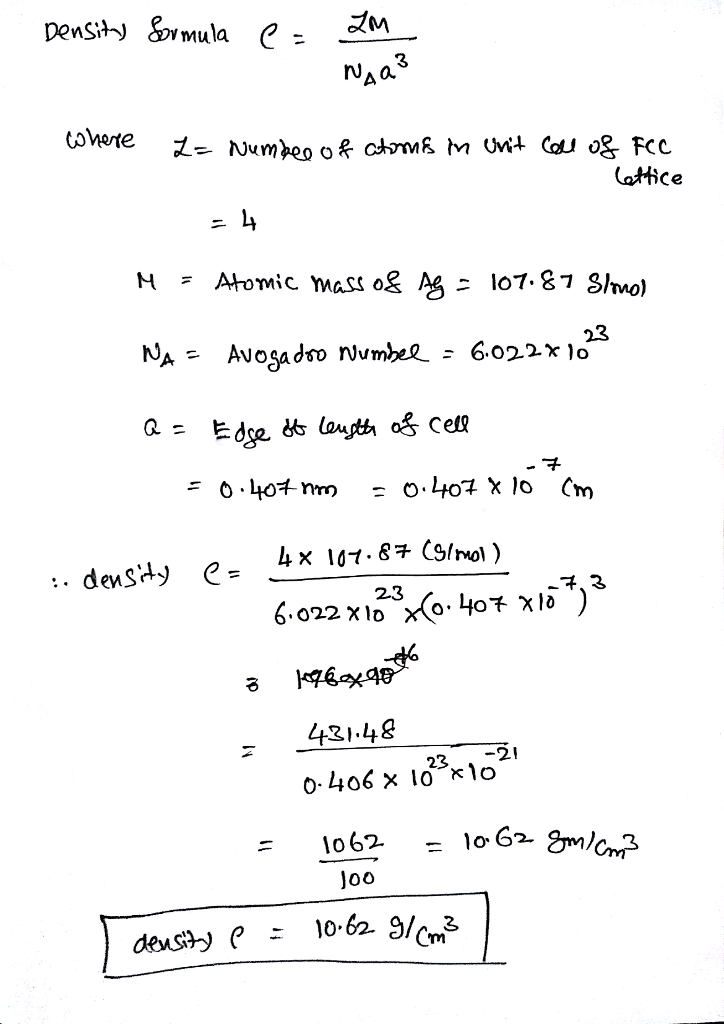 Density formula ρ = ZM / N_A a³
where Z = Number of atoms in unit cell of FCC
lattice
= 4
M = Atomic mass of Ag = 107.87 g/mol
N_A = Avogadro Number = 6.022 × 10²³
a = Edge length of cell
= 0.407 nm = 0.407 × 10⁻⁷ cm
∴ density ρ = 4 × 107.87 (g/mol) / 6.022 × 10²³ × (0.407 × 10⁻⁷)³
=
= 431.48 / 0.406 × 10²³ × 10⁻²¹
= 1062 / 100 = 10.62 gm/cm³
density ρ = 10.62 g/cm³